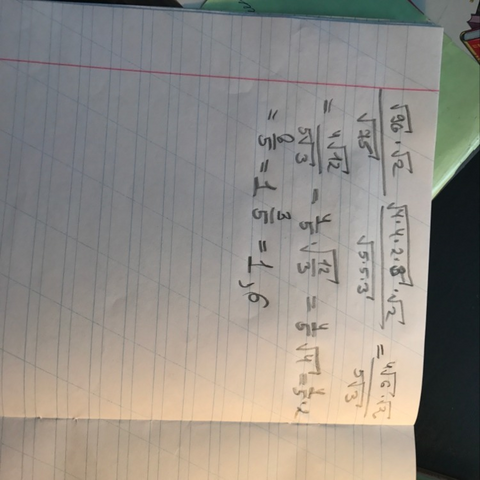 √96·√2/√75 √(4·4·2·8)·√2/√(5·5·3) = 4√6·√2/5√3
= 4√12/5√3 = 4/5·√(12/3) = 4/5√4 = 4/5·2
= 8/5 = 1 3/5 = 1,6